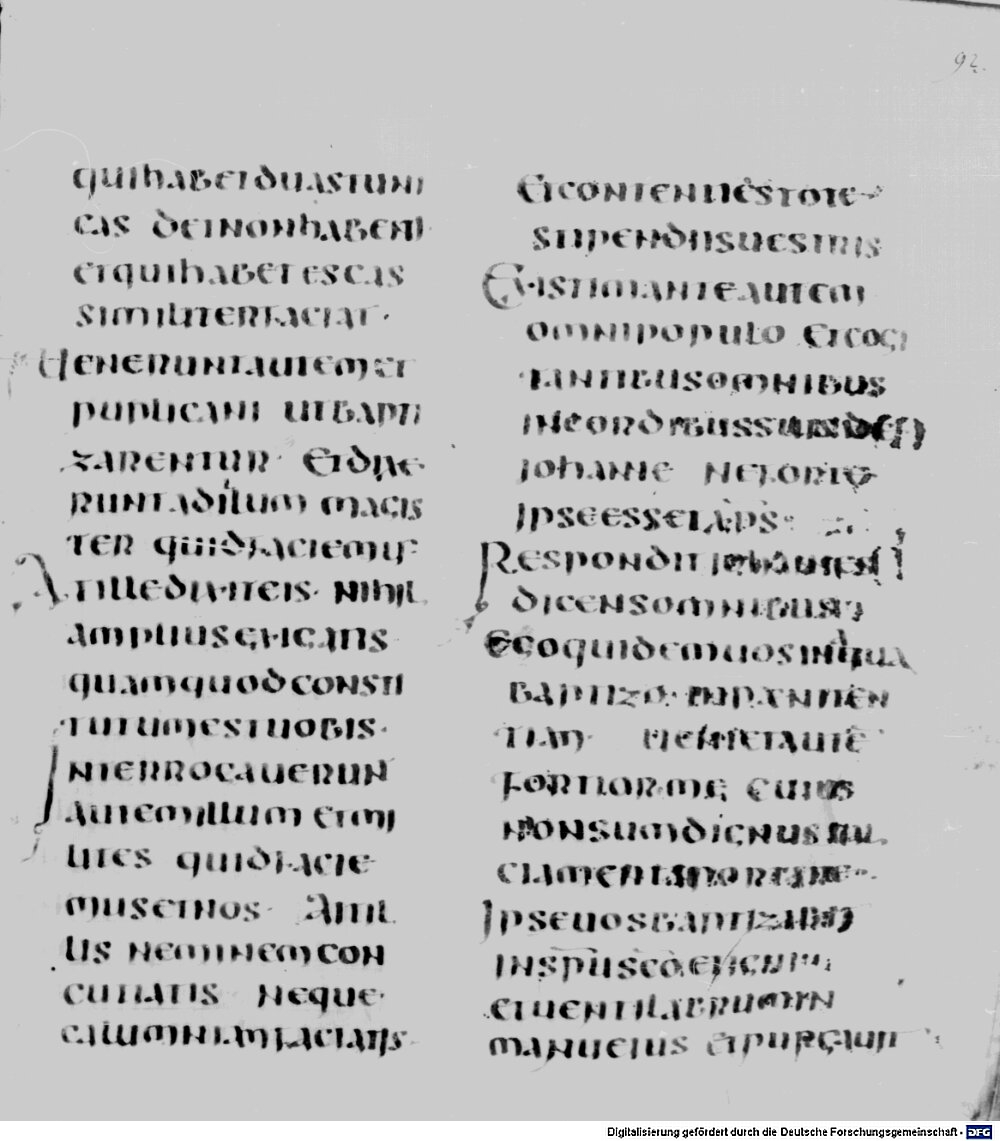 92.
quihabetduastuni
cas detnonhabenti
etquihabetescas
similiterfaciat·
Ueneruntautemet
puplicani utbapti
zarentur· etdixe
runtadillum magis
ter quidfaciemus
Atilledixiteis· nihil
ampliusexigatis
quamquodconsti
tutumestuobis·
Interrogauerun
autemillum etmi
lites quidfacie
museinos· Aitil
lis neminemcon
cutiatis neque
calumniamfaciatis
Etcontentiestote
stipendiisuestris
Existimanteautem
omnipopulo etcogi
tantibusomnibus
incordibussuisde
iohanne neforte
ipseessetxps·
Respondit iohannes
dicensomnibus
Egoquidemuosinaqua
baptizo· inpaeniten
tiam uenietaute
fortiorme cuius
nonsumdignus
calciamentaportare·
Ipseuosbaptizauit
inspuscoetigni
etuentilabrumin
manueius etpurgauit
Digitalisierung gefördert durch die Deutsche Forschungsgemeinschaft - DFG